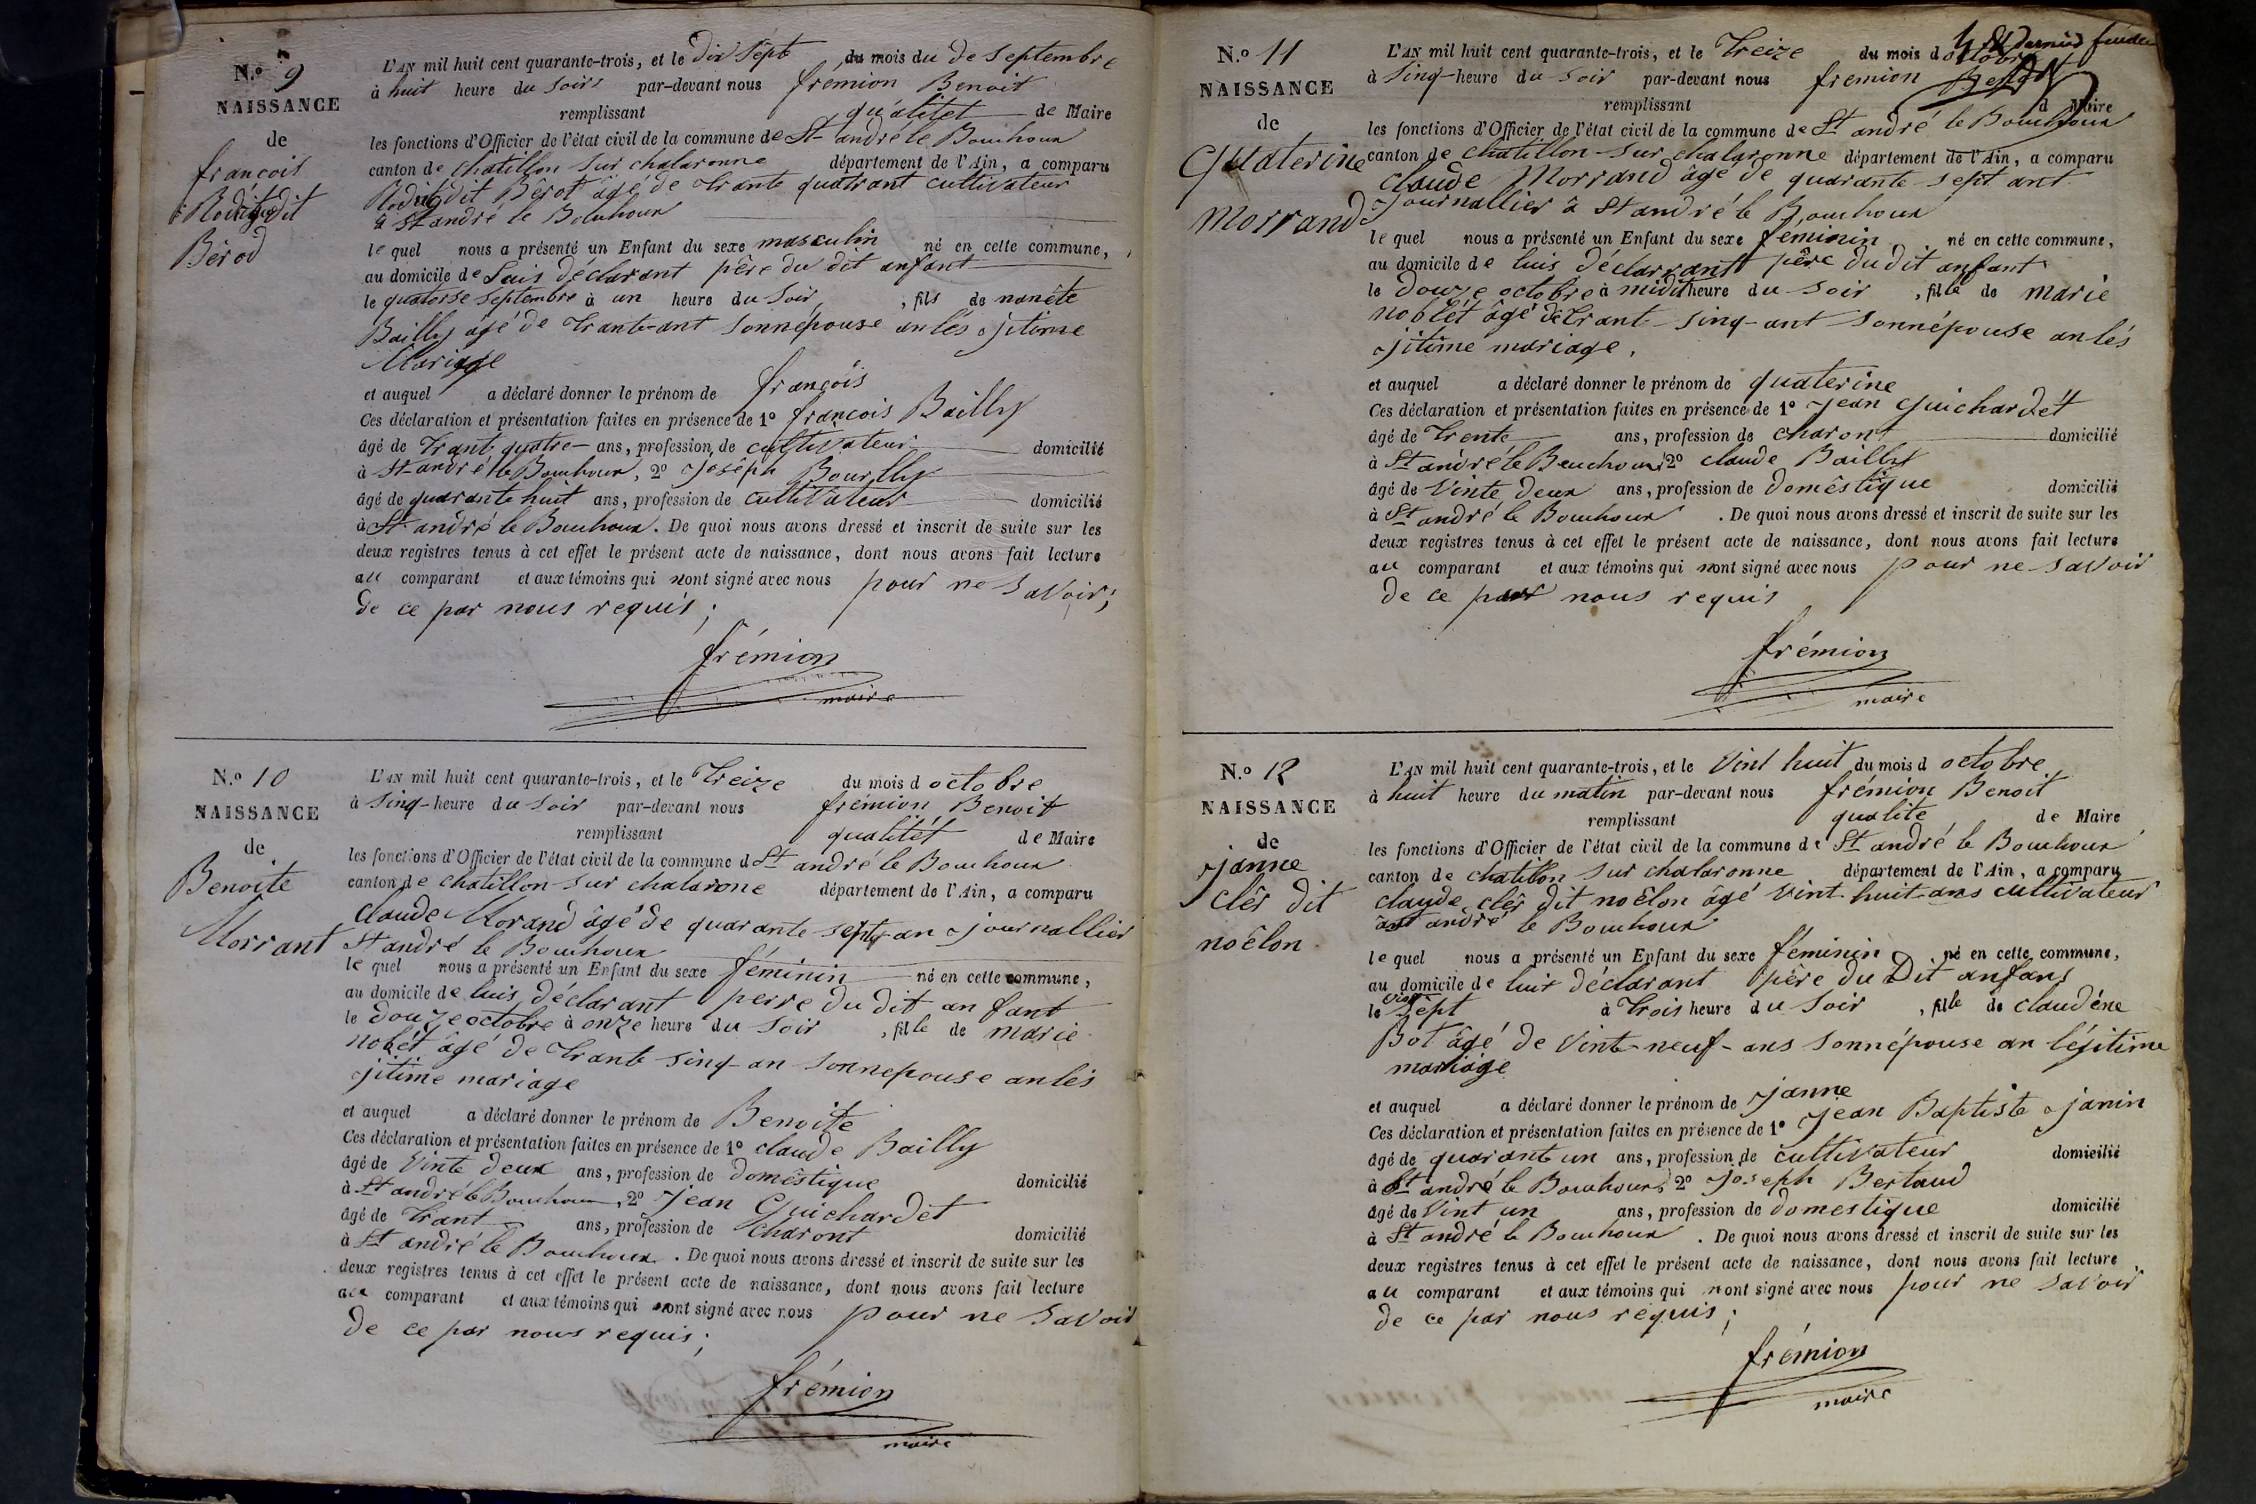 N.º 9
NAISSANCE
de
françois
Rodig dit
Bérod
L'AN mil huit cent quarante-trois, et le dix sept du mois du de septembre
à huit heure du soirs par-devant nous fremion Benoit
remplissant qualitet de Maire
les fonctions d'Officier de l'état civil de la commune de St andré le Bouchoux
canton de chatillon sur chalaronne département de l'Ain, a comparu
Rodig dit Bérot âgé de trante quatrant cultivateur
a St andré le Bouchoux
le quel nous a présenté un Enfant du sexe masculin né en cette commune,
au domicile de Luis déclarant pêre du dit anfant
le quatorse septembre à un heure du soir, fils de nanête
Bailly âgé de trante-ant sonnépouse an lés jitime
Mariage
et auquel a déclaré donner le prénom de françois
Ces déclaration et présentation faites en présence de 1º françois Bailly
âgé de trant quatre ans, profession de cultivateur domicilié
à St andré le Bouchoux, 2º Joséph Bourlly
âgé de quarante huit ans, profession de cultivateur domicilié
à St andré le Bouchoux. De quoi nous avons dressé et inscrit de suite sur les
deux registres tenus à cet effet le présent acte de naissance, dont nous avons fait lecture
au comparant et aux témoins qui nont signé avec nous pour ne savoir;
de ce par nous requis;
frémion
maire
N.º 10
NAISSANCE
de
Benoite
Morrant
L'AN mil huit cent quarante-trois, et le treize du mois d octobre
à sinq-heure du soir par-devant nous frémion Benoit
remplissant qualitét de Maire
les fonctions d'Officier de l'état civil de la commune d St andré le Bouchoux
canton de chatillon sur chalarone département de l'Ain, a comparu
claude Morand âgé de quarante sept-an journallier
St andré le Bouchoux
le quel nous a présenté un Enfant du sexe féminin né en cette commune,
au domicile de luis déclarant perre du dit an fant
le douze octobre à onze heure du soir, fille de marie
nobét âgé de trante sinq-an sonnepouse an lés
jitime mariage
et auquel a déclaré donner le prénom de Benoite
Ces déclaration et présentation faites en présence de 1º claude Bailly
âgé de vinte deux ans, profession de domêstique domicilié
à St andré le Bouchoux, 2º Jean Guichardet
âgé de trant ans, profession de charont domicilié
à St andré le Bouchoux. De quoi nous avons dressé et inscrit de suite sur les
deux registres tenus à cet effet le présent acte de naissance, dont nous avons fait lecture
au comparant et aux témoins qui nont signé avec nous pour ne savoir
de ce par nous requis;
frémion
maire
N.º 11
NAISSANCE
de
Quaterine
Morrand
L'AN mil huit cent quarante-trois, et le treize du mois d octobre
à sinq-heure du soir par-devant nous fremion
remplissant d Maire
les fonctions d'Officier de l'état civil de la commune de St andré le Bouchoux
canton de chatillon-sur chalaronne département de l'Ain, a comparu
claude Morrand âgé de quarante sept ant
Journallier à St andré le Bouchoux
le quel nous a présenté un Enfant du sexe féminin né en cette commune,
au domicile de luis déclarrant pêre du dit anfant
le douze octobre à midit heure du soir, fille de marie
noblét âgé de trant-sinq-ant sonnépouse an lés
jitime mariage,
et auquel a déclaré donner le prénom de quaterine
Ces déclaration et présentation faites en présence de 1º Jean Guichardett
âgé de trente ans, profession de charont domicilié
à St andré le Bouchoux, 2º claude Bailly
âgé de vinte deux ans, profession de domêstique domicilié
à St andré le Bouchoux. De quoi nous avons dressé et inscrit de suite sur les
deux registres tenus à cet effet le présent acte de naissance, dont nous avons fait lecture
au comparant et aux témoins qui nont signé avec nous pour ne savoir
de ce par nous requis
frémion
maire
N.º 12
NAISSANCE
de
Janne
clêr dit
noêlon
L'AN mil huit cent quarante-trois, et le vint huit du mois d octobre
à huit heure du matin par-devant nous frémion Benoit
remplissant qualite de Maire
les fonctions d'Officier de l'état civil de la commune de St andré le Bouchoux
canton de chatillon sur chalaronne département de l'Ain, a comparu
claude clêr dit noêlon âgé vint-huit-ans cultivateur
à St andré le Bouchoux
le quel nous a présenté un Enfant du sexe féminin né en cette commune,
au domicile de luis déclarant pêre du Dit anfans
le vint sept à trois heure du soir, fille de claudéne
Bot âgé de vinte-neuf-ans sonnépouse an légitime
mariage
et auquel a déclaré donner le prénom de Janne
Ces déclaration et présentation faites en présence de 1º Jean Baptiste Janin
âgé de quarante un ans, profession de cultivateur domicilié
à St andré le Bouchoux, 2º Joseph Bertaud
âgé de vint un ans, profession de domestique domicilié
à St andré le Bouchoux. De quoi nous avons dressé et inscrit de suite sur les
deux registres tenus à cet effet le présent acte de naissance, dont nous avons fait lecture
au comparant et aux témoins qui nont signé avec nous pour ne savoir
de ce par nous requis;
frémion
maire